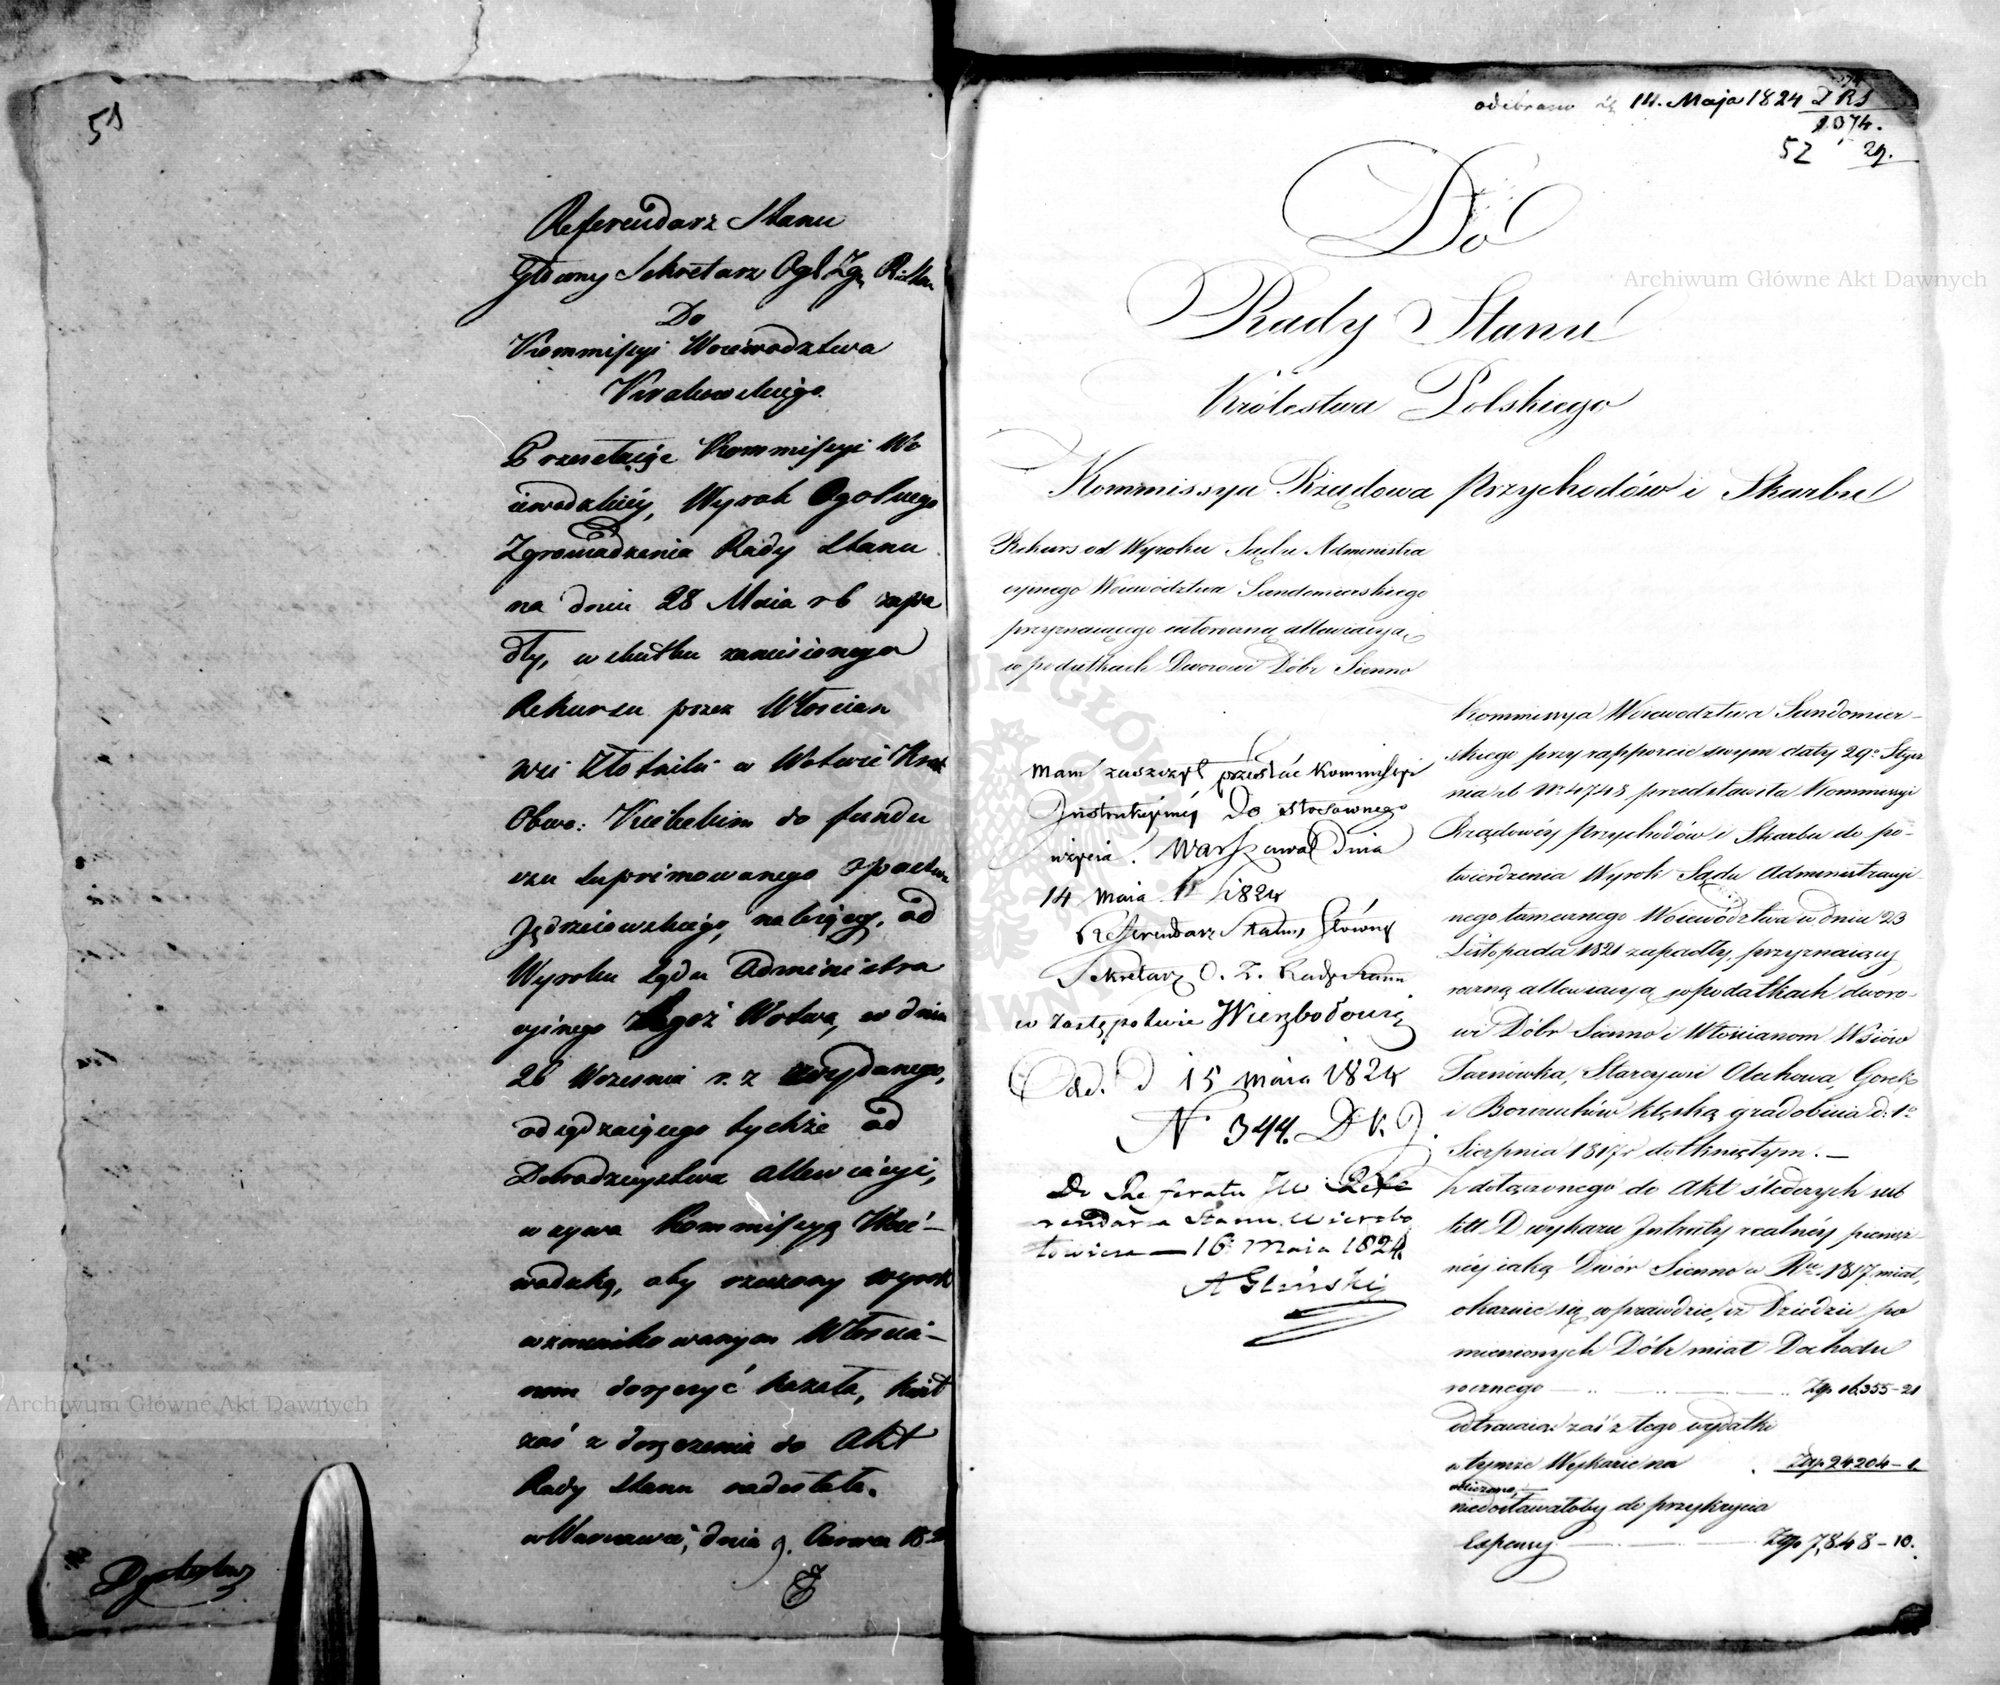 51
Referendarz Stanu
Główny Sekretarz Ogl Zgr R Stanu
Do
Kommissyi Woiewodztwa
Krakowskiego
Przesełaiąc Kommissyi Wo
iewodzkiéy, Wyrok Ogolnego
Zgromadzenia Rady Stanu
na dniu 28 Maia rb zapa
dły, w skutku zaniesionego
Rekursu przez Włościan
wsi Złotniki w Wotwie Krak
Obwo: Kieleckim do fundu
szu supprimowanego Opactwa
Jędrzeiowskiego, należącey, od
Wyroku Sądu Administra
cyinego tegoż Wotwa, w dniu
26 Września r. z wydanego,
odsądzaiącego tychże od
Dobrodzieystwa allewiacyi,
wzywa Kommissyą Woie-
wodzką, aby rzeczony wyrok
wzmiankowanym Włościa-
nom doręczyć kazała, kwit
zaś z doręczenia do Akt
Rady Stanu nadesłała.
w Warszawie, dnia 9. Czerwca 182
odebrano dę 14. Maja 1824 D R S
1074.
52 29.
Do
Rady Stanu
Królestwa Polskiego
Kommissya Rządowa Przychodów i Skarbu
Rekurs od Wyroku Sądu Administra
cyinego Woiewództwa Sandomierskiego
przyznaiącego cateroczną allewiacyą
w podatkach Dworowi Dóbr Sienno
Mam zaszczyt przesłać Kommissyi
Instrukcyinéy Do stosownego
użycia. Warszawa Dnia
14 Maia 1824
Referendarz Stanu, Główny
Sekretarz O. Z. Rady Stanu
w Zastępstwie Wierzbołowicz
Odd. D 15 Maia 1824
N 344. D K. J.
Do Referatu JW Refe
rendarza Stanu Wierzbo
łowicza — 16 Maia 1824
A Gliński
Kommissya Woiewodztwa Sandomier-
skiego przy rapporcie swym daty 29o Stycz
nia rb No 4748 przedstawiła Kommissyi
Rządowéy Przychodów i Skarbu do po-
twierdzenia Wyrok Sądu Administracyi
nego tamecznego Woiewództwa w dniu 23
Listopada 1821 zapadły, przyznaiący
roczną allewiacyą w podatkach dworo-
wi Dóbr Sienno i Włościanom Wsiów
Tarnówka, Starzywsi Olechowa, Gorek
i Boruchów klęską gradobicia d: 1o
Sierpnia 1817 r dotkniętym. —
Z dołączonego do Akt śledczych sub
litt D wykazu Intraty realnéy pienięż
néy iaką Dwór Sienno w Rku 1817 miał,
okazuie się wprawdzie, iż Dziedzic po
mienionych Dóbr miał Dochodu
rocznego — Zp. 16,355-21
odtrąciwszy zaś z tego wydatki
w tymże Wykazie na Złp 24204-1.
wliczone,
niedostawałoby do przykrycia
Expensy — Złp 7,848-10.
Archiwum Główne Akt Dawnych
Archiwum Główne Akt Dawnych